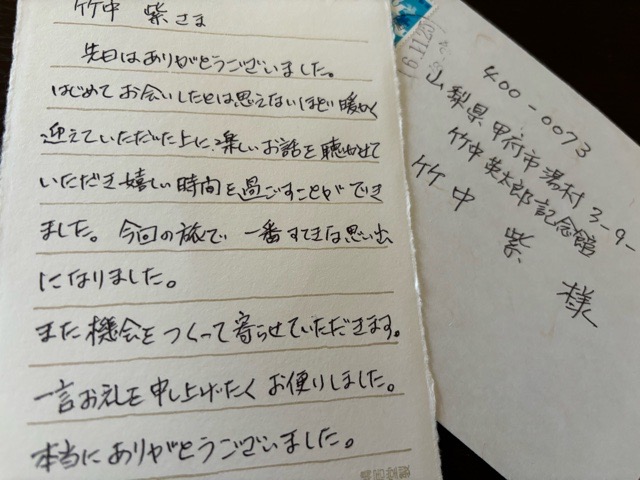 竹中 紫さま
先日はありがとうございました。
はじめてお会いしたとは思えないほど暖かく
迎えていただいた上に、楽しいお話を聴かせて
いただき嬉しい時間を過ごすことができ
ました。今回の旅で一番すてきな思い出
になりました。
また機会をつくって寄らせていただきます。
一言お礼を申し上げたくお便りしました。
本当にありがとうございました。
6.11.26
400-0073
山梨県甲府市湯村3-9-
竹中英太郎記念館
竹中 紫 様